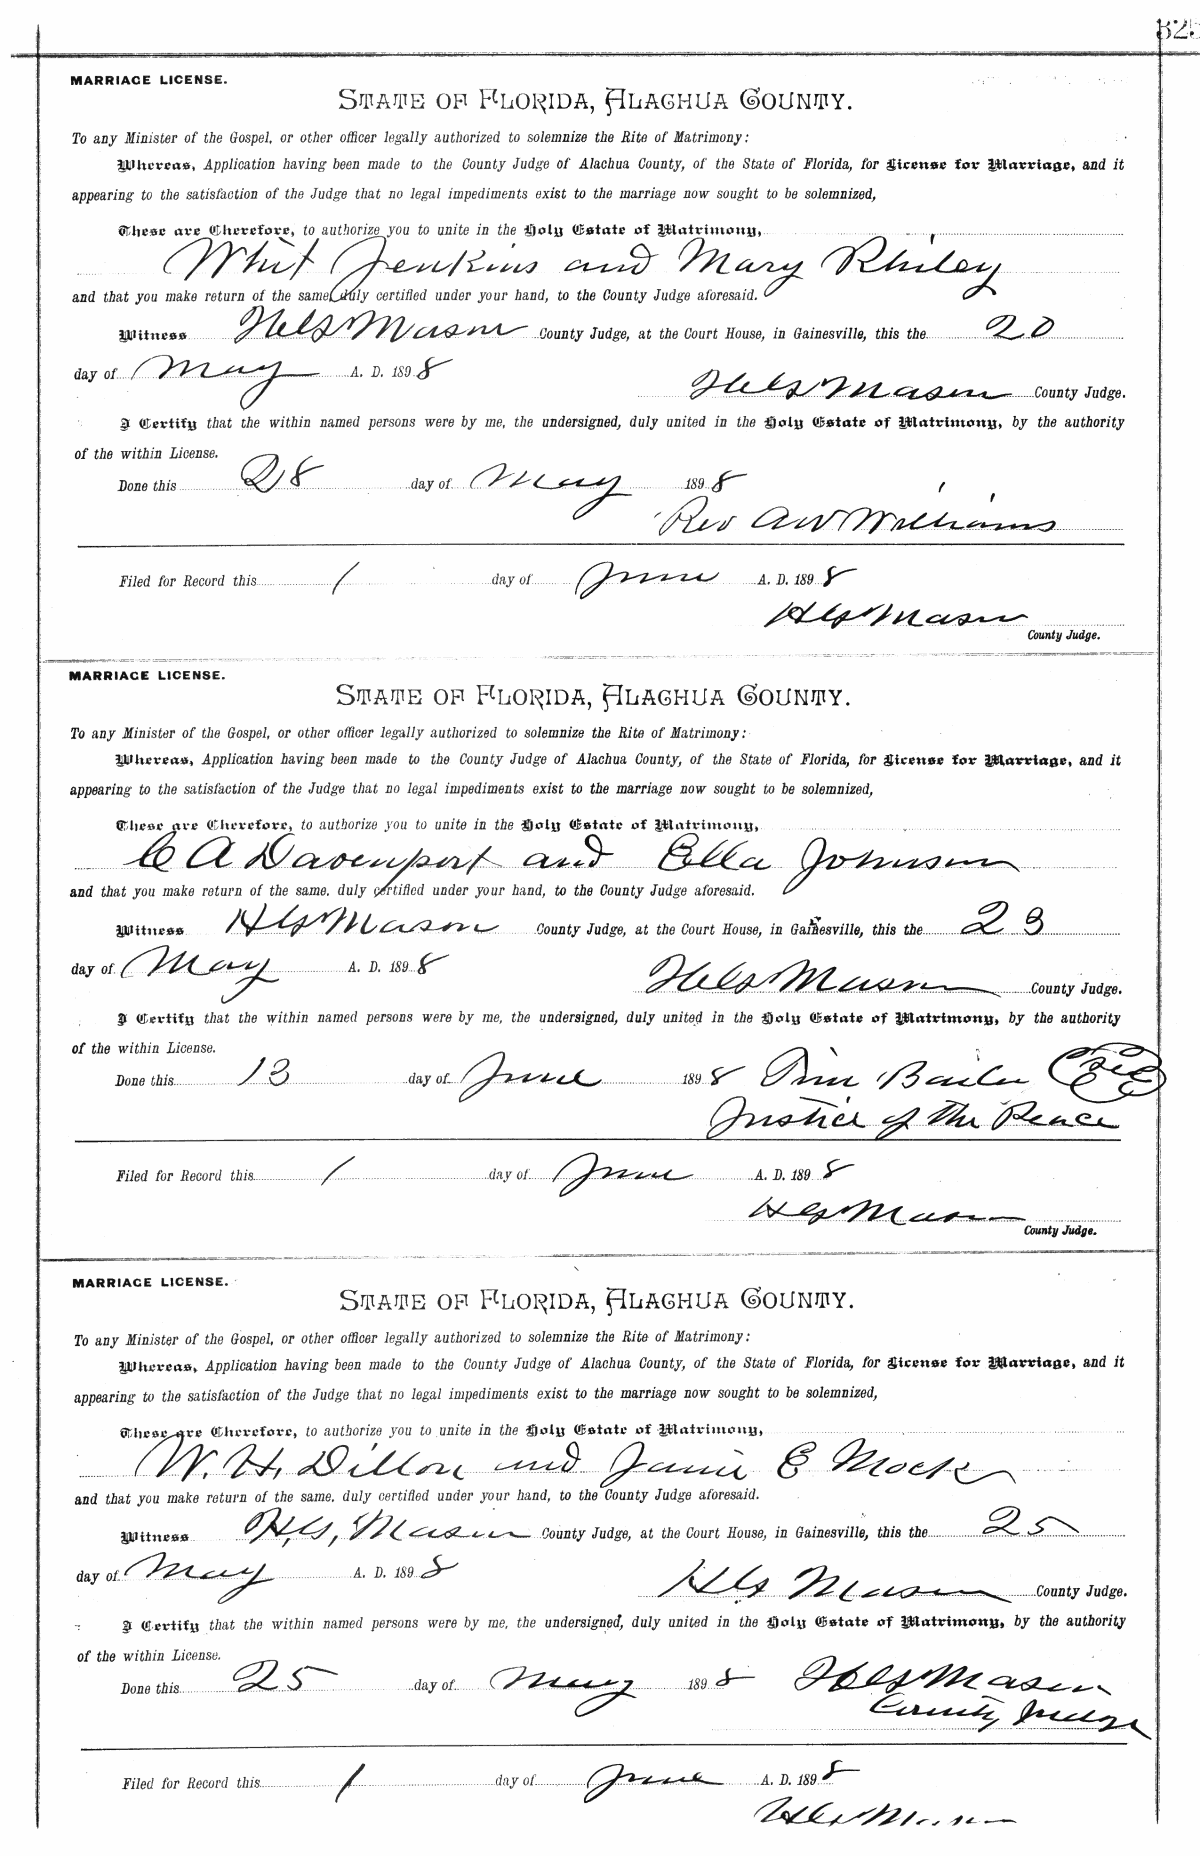 325
MARRIAGE LICENSE.
STATE OF FLORIDA, ALACHUA COUNTY.
To any Minister of the Gospel, or other officer legally authorized to solemnize the Rite of Matrimony:
Whereas, Application having been made to the County Judge of Alachua County, of the State of Florida, for License for Marriage, and it
appearing to the satisfaction of the Judge that no legal impediments exist to the marriage now sought to be solemnized,
These are Therefore, to authorize you to unite in the Holy Estate of Matrimony,
Whit Jenkins and Mary Rhiley
and that you make return of the same, duly certified under your hand, to the County Judge aforesaid.
Witness H. G. Mason County Judge, at the Court House, in Gainesville, this the 20
day of May A. D. 1898
H. G. Mason County Judge.
I Certify that the within named persons were by me, the undersigned, duly united in the Holy Estate of Matrimony, by the authority
of the within License.
Done this 28 day of May 1898
Rev A W Williams
Filed for Record this 1 day of June A. D. 1898
H G Mason
County Judge.
MARRIAGE LICENSE.
STATE OF FLORIDA, ALACHUA COUNTY.
To any Minister of the Gospel, or other officer legally authorized to solemnize the Rite of Matrimony:
Whereas, Application having been made to the County Judge of Alachua County, of the State of Florida, for License for Marriage, and it
appearing to the satisfaction of the Judge that no legal impediments exist to the marriage now sought to be solemnized,
These are Therefore, to authorize you to unite in the Holy Estate of Matrimony,
C A Davenport and Ella Johnson
and that you make return of the same, duly certified under your hand, to the County Judge aforesaid.
Witness H G Mason County Judge, at the Court House, in Gainesville, this the 23
day of May A. D. 1898
H G Mason County Judge.
I Certify that the within named persons were by me, the undersigned, duly united in the Holy Estate of Matrimony, by the authority
of the within License.
Done this 13 day of June 1898
Justice of the Peace
Filed for Record this 1 day of June A. D. 1898
H G Mason
County Judge.
MARRIAGE LICENSE.
STATE OF FLORIDA, ALACHUA COUNTY.
To any Minister of the Gospel, or other officer legally authorized to solemnize the Rite of Matrimony:
Whereas, Application having been made to the County Judge of Alachua County, of the State of Florida, for License for Marriage, and it
appearing to the satisfaction of the Judge that no legal impediments exist to the marriage now sought to be solemnized,
These are Therefore, to authorize you to unite in the Holy Estate of Matrimony,
W. H. Dillon and Janie E Mock
and that you make return of the same, duly certified under your hand, to the County Judge aforesaid.
Witness H. G. Mason County Judge, at the Court House, in Gainesville, this the 25
day of May A. D. 1898
H G Mason County Judge.
I Certify that the within named persons were by me, the undersigned, duly united in the Holy Estate of Matrimony, by the authority
of the within License.
Done this 25 day of May 1898 H G Mason
County Judge
Filed for Record this 1 day of June A. D. 1898
H G Mason